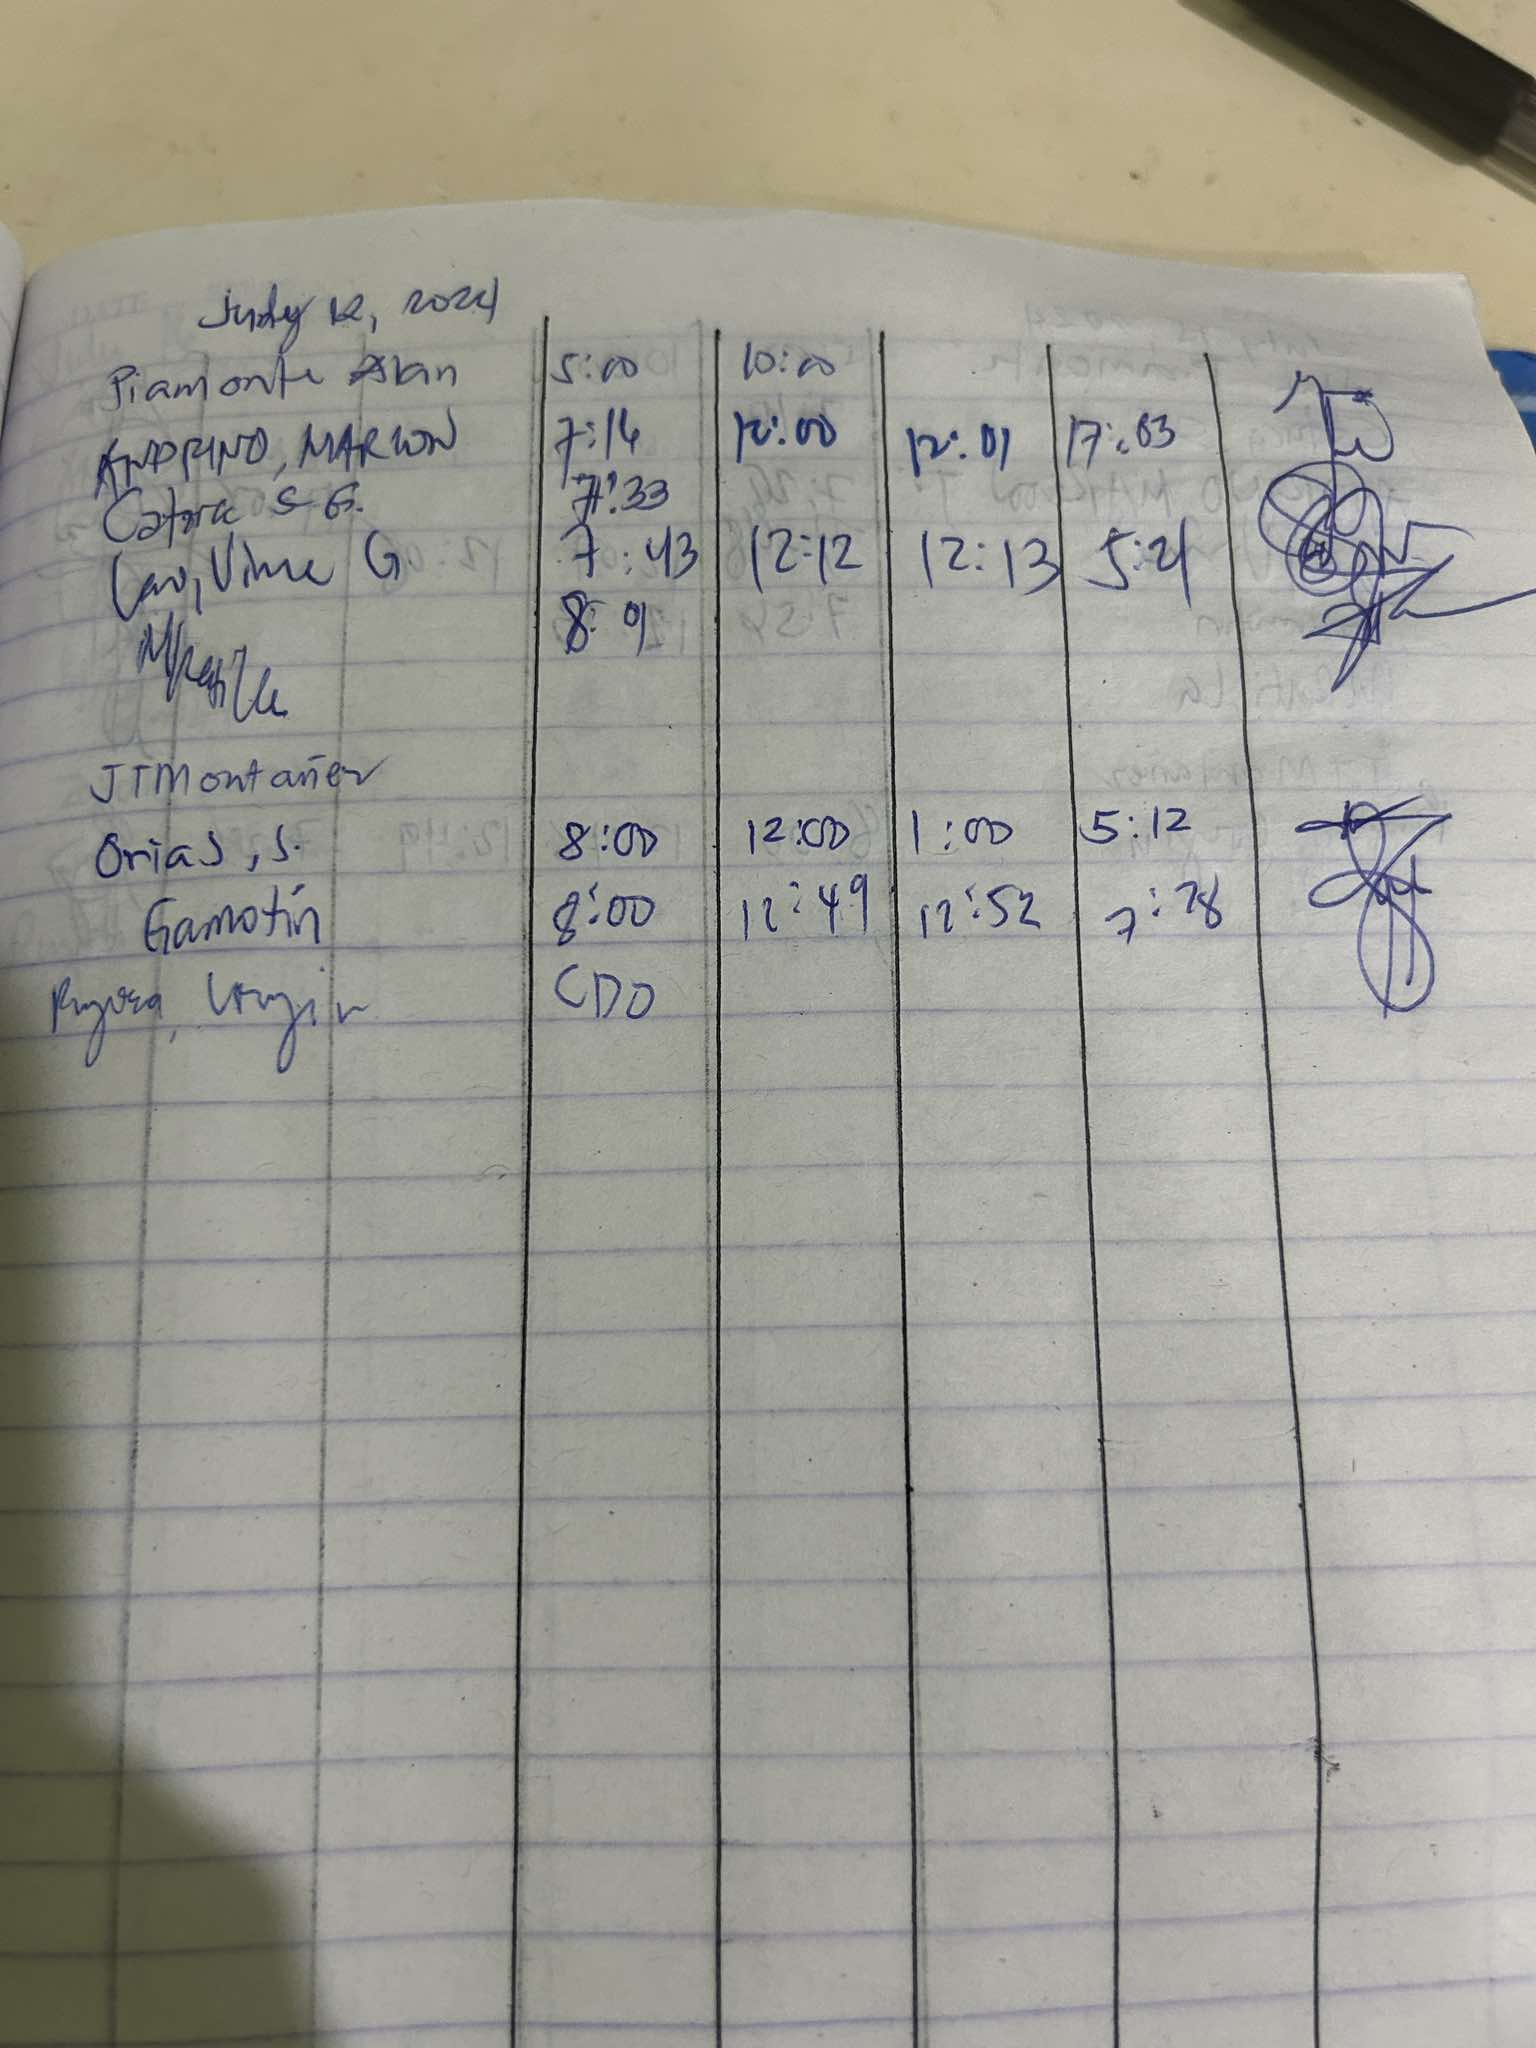 July 12, 2024
Piamonte Alan 5:00 10:00
ANDRINO, MARLON 7:14 12:00 12:01 17:03
S G. 7:33
Vince G 7:43 12:12 12:13 5:21
8:01
JTMontañer
Orias, S. 8:00 12:00 1:00 5:12
Gamotin 8:00 12:49 12:52 7:28
CDO